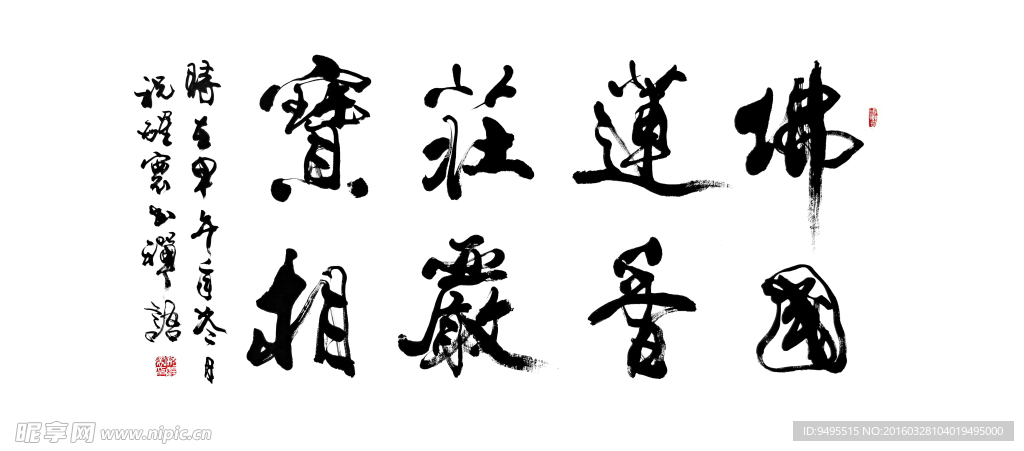 佛國
蓮香
莊嚴
寶相
時在甲午月
祝醒寰書禪語
昵享网 www.nipic.cn
ID:9495515 NO:20160328104019495000